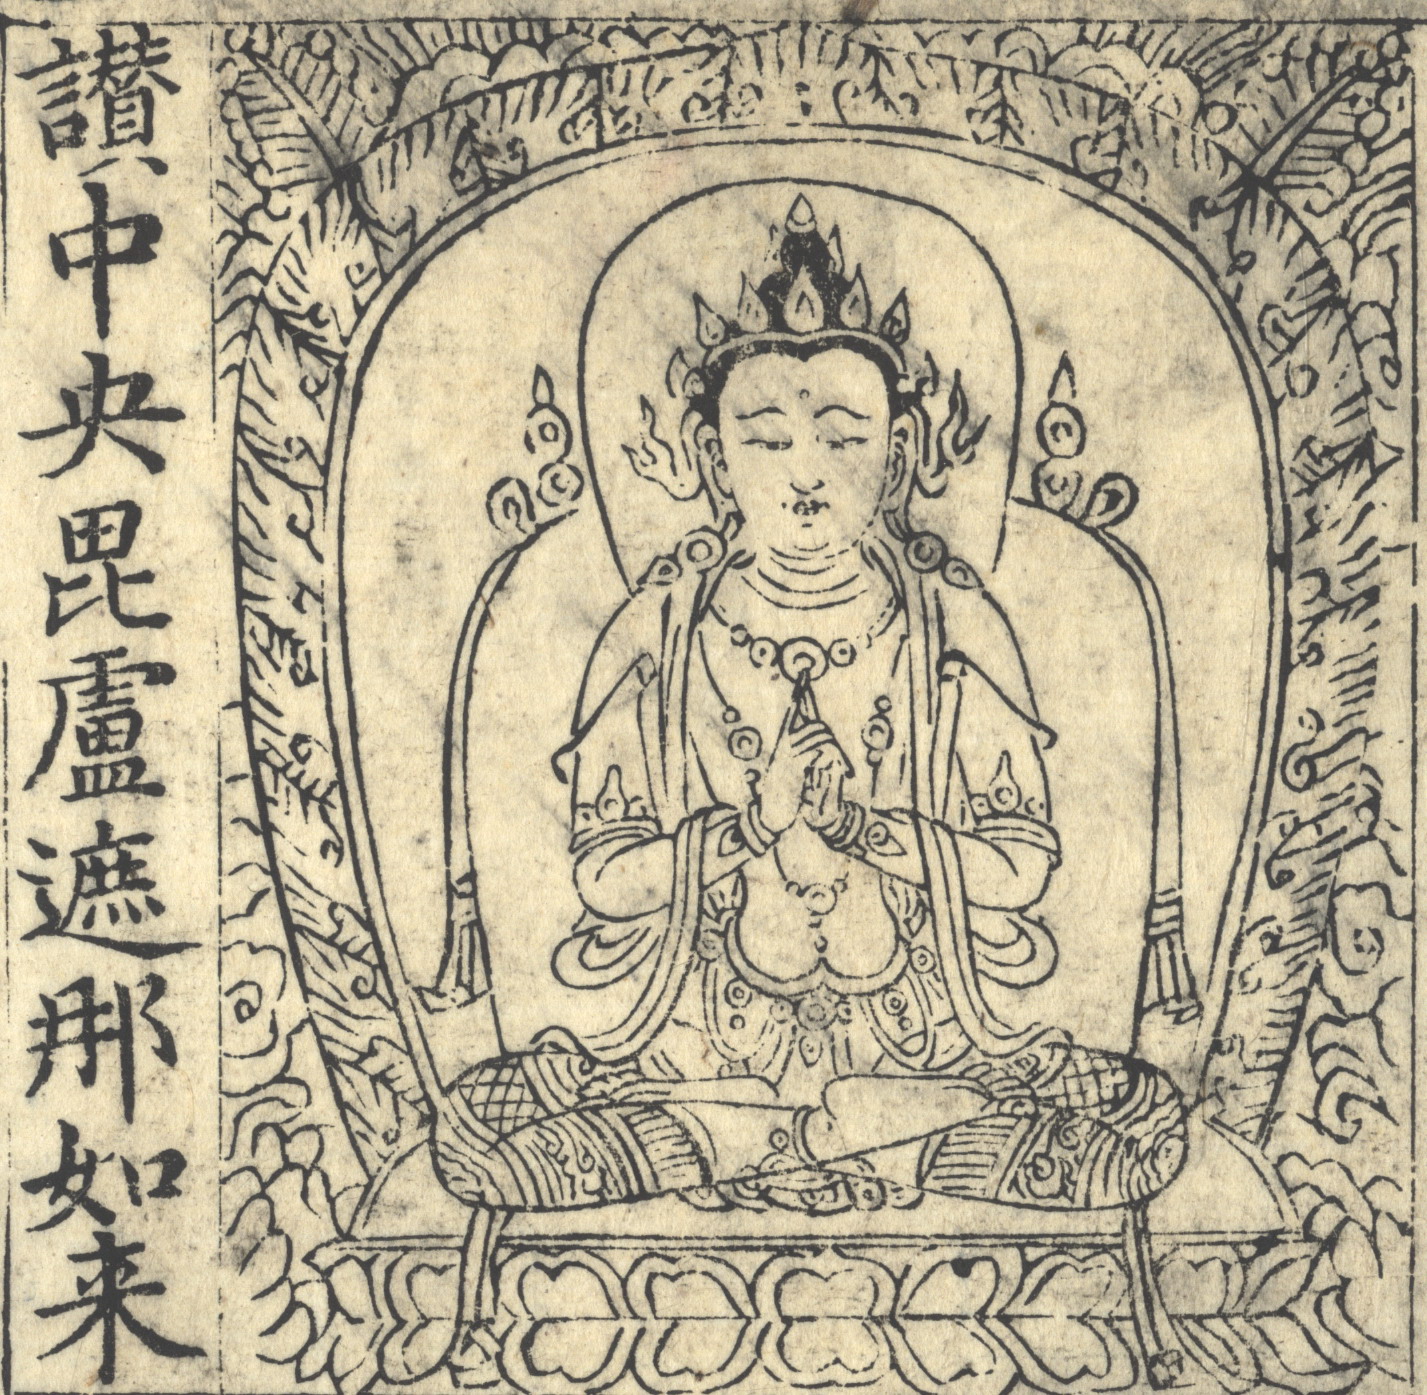 讃中央毘盧遮那如来